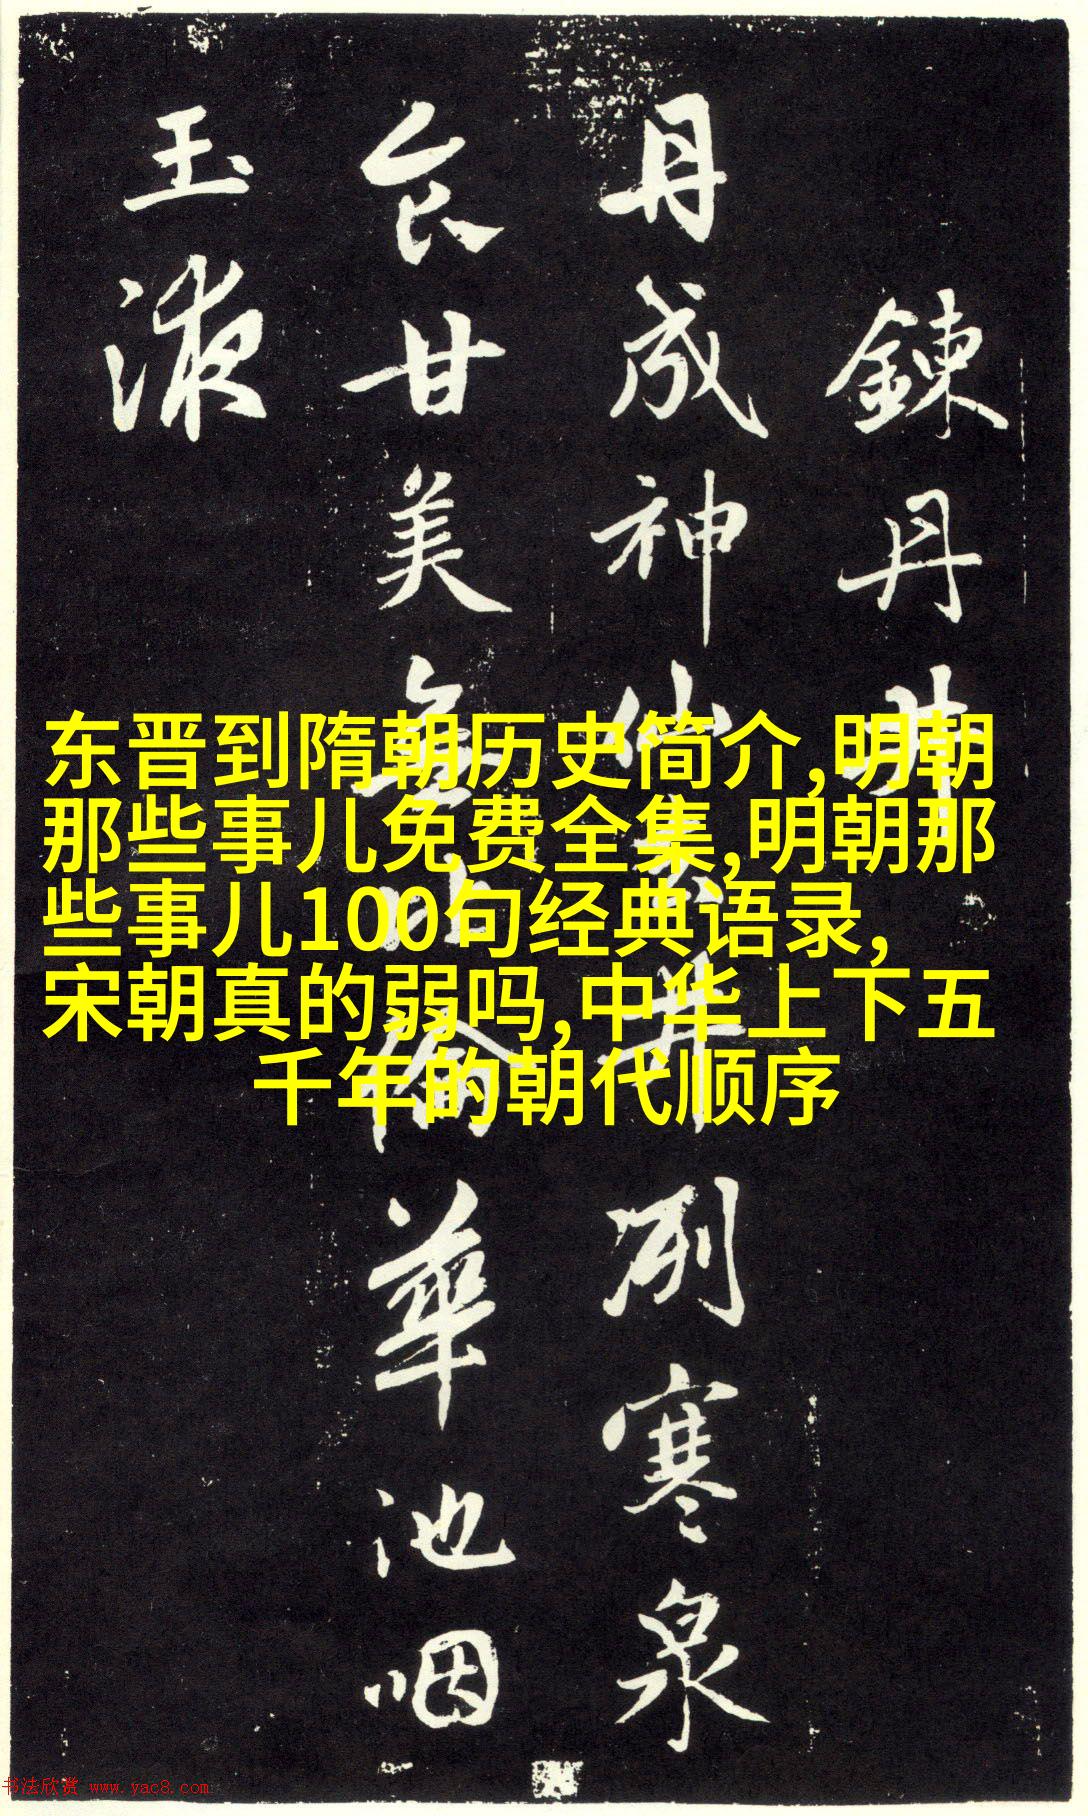 鍊丹井
丹成神仙去井冽寒泉
食甘美無比倫華池咽
玉液
东晋到隋朝历史简介,明朝
那些事儿免费全集,明朝那
些事儿100句经典语录,
宋朝真的弱吗,中华上下五
千年的朝代顺序
书法欣赏 www.yac8.com